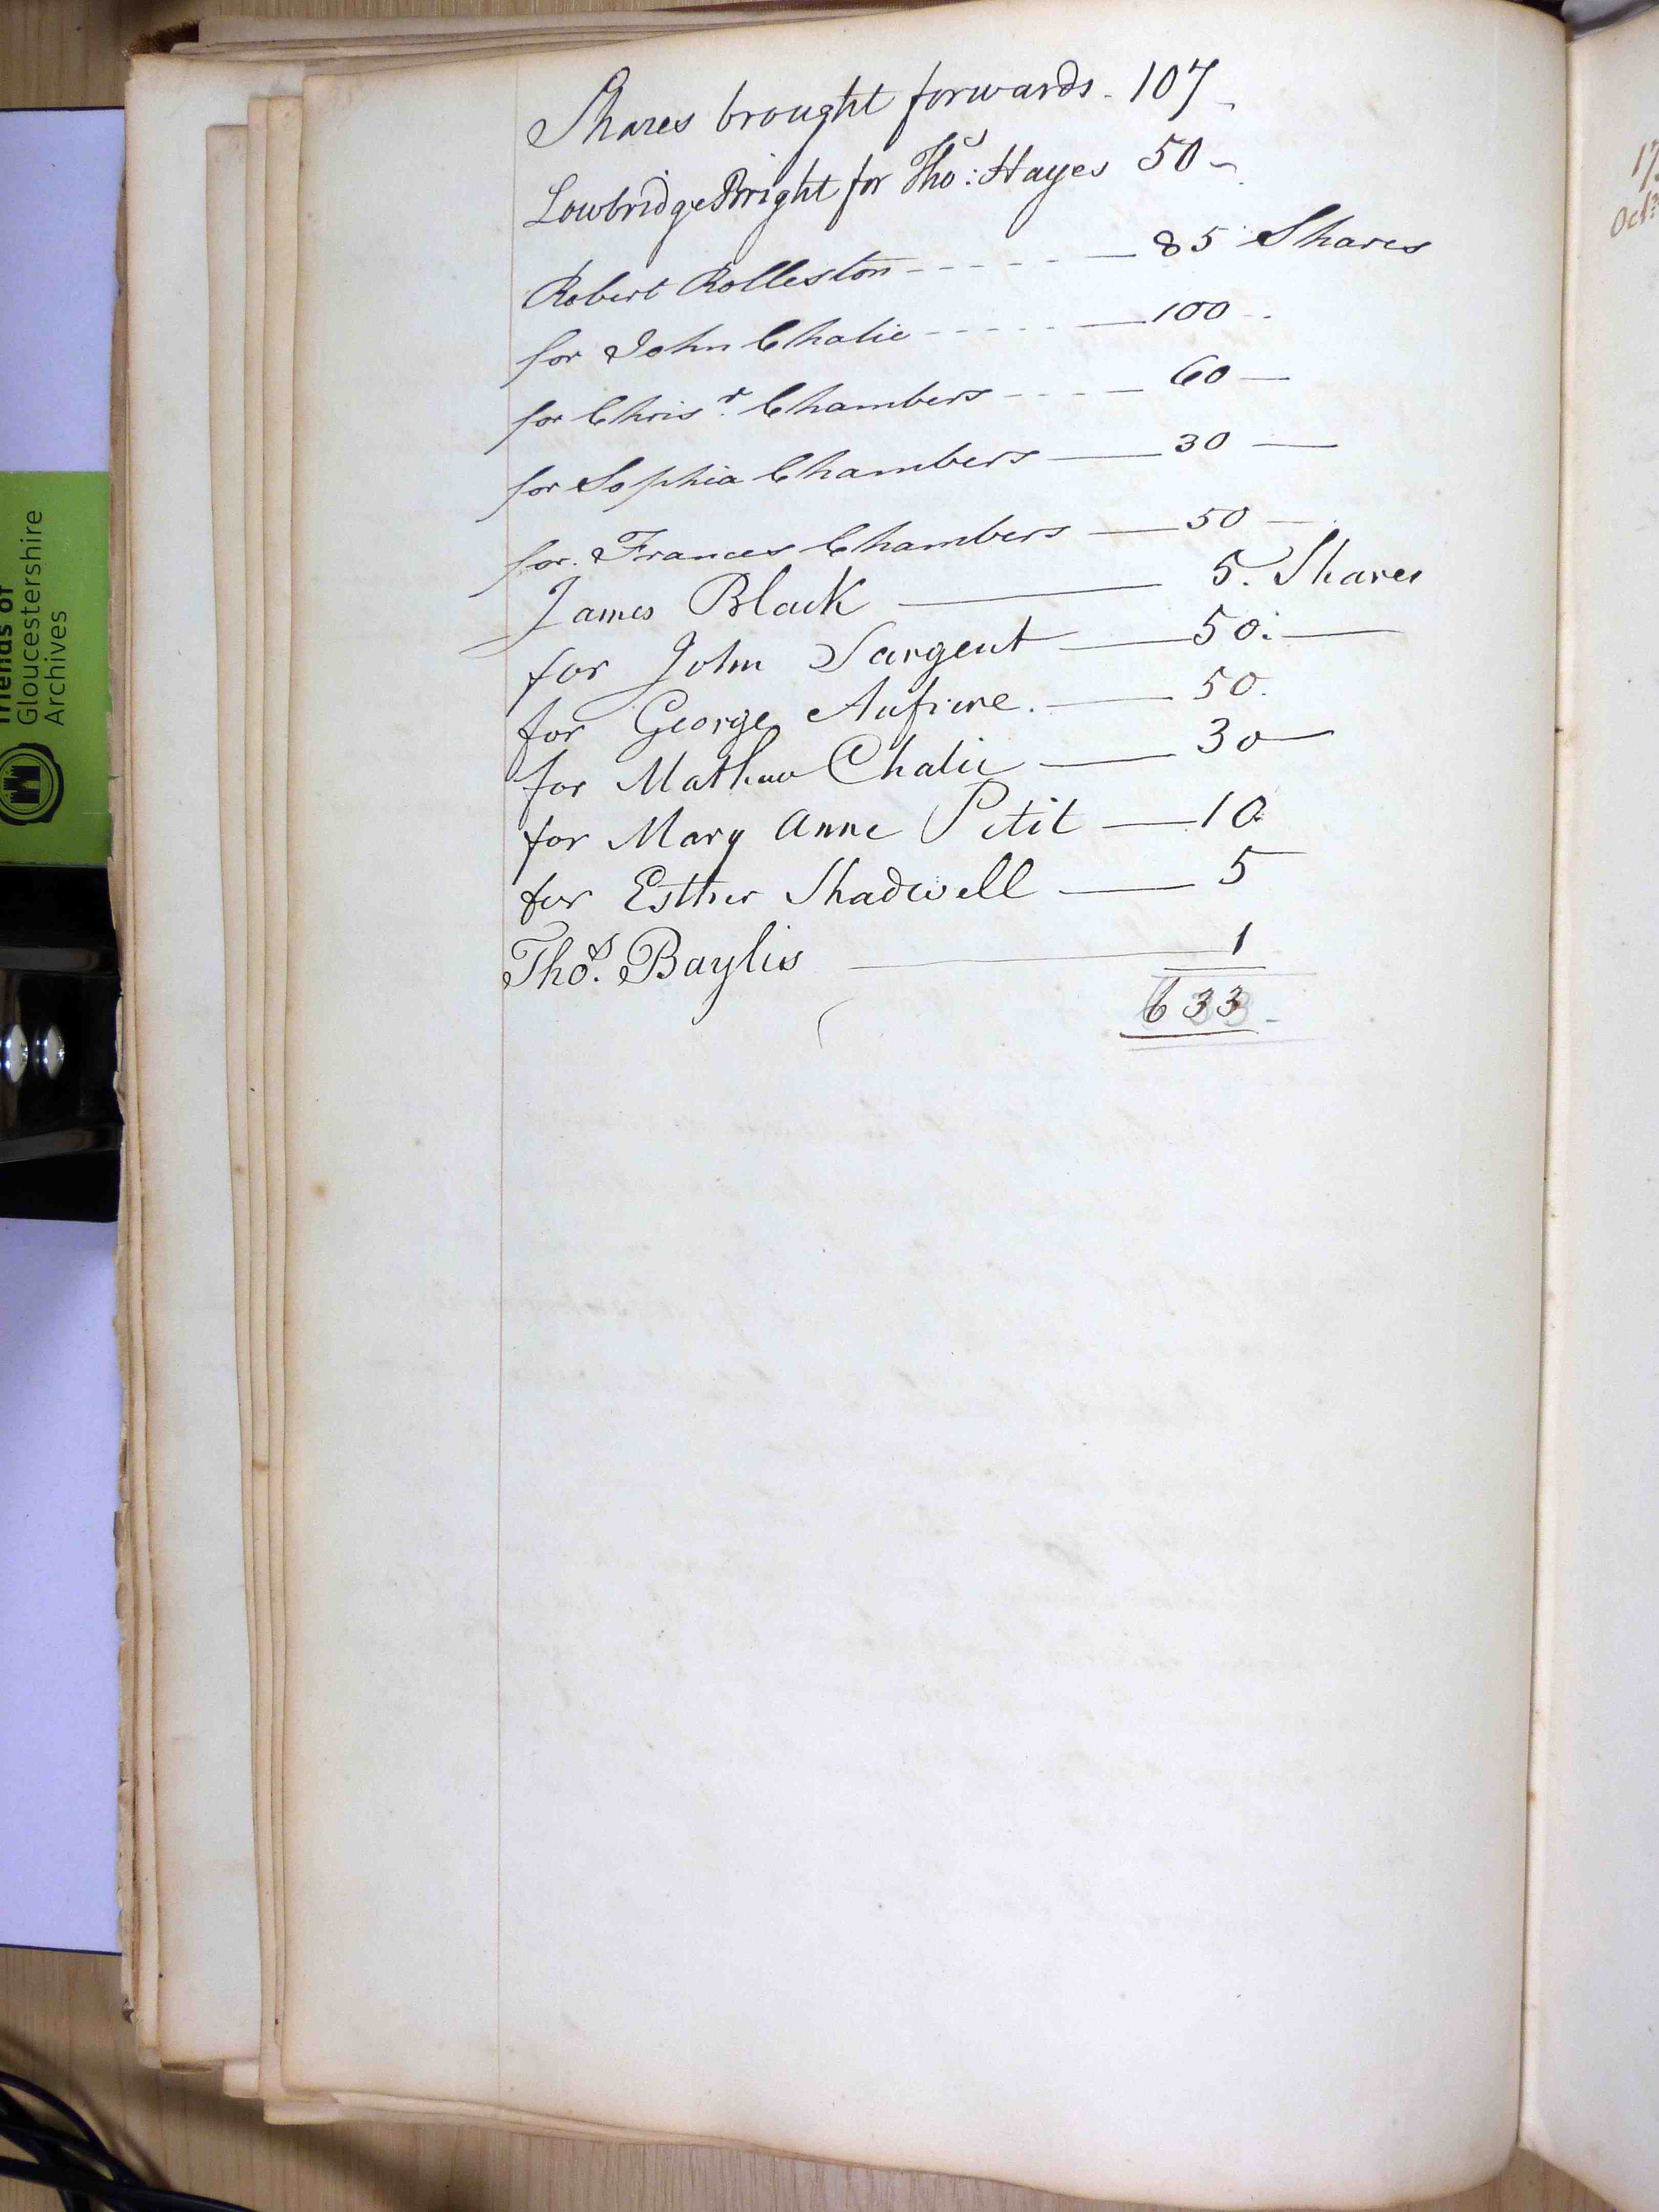 Shares brought forwards - 107 -
Lowbridge Bright for Tho:s Hayes 50 -
Robert Rolleston - - - - - — 85 Shares
for John Chalie - - - - - — 100 - -
for Chris.r Chambers - - - — 60 —
for Sophia Chambers — 30 —
for. Frances Chambers — 50 —
James Black — 5. Shares
for John Sargent — 50. —
for George Aufrere. — 50.
for Mathew Chalie — 30 —
for Mary Anne Petit — 10
for Esther Shadwell — 5
Tho.s Baylis — 1
633 -
Friends of
Gloucestershire
Archives
Oct.